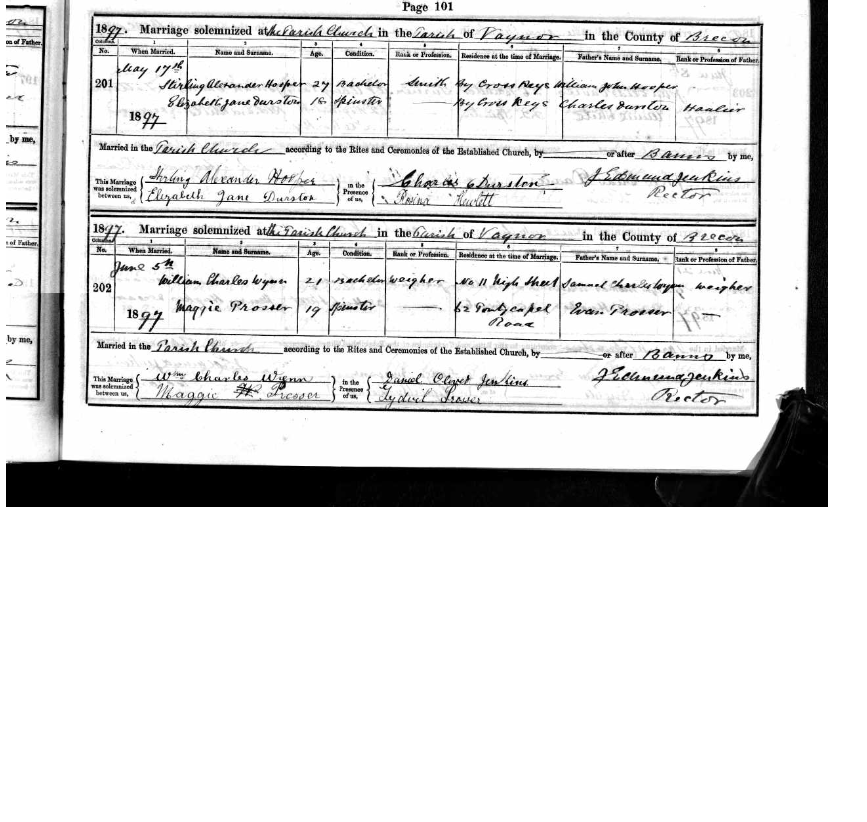 Page 101
1897. Marriage solemnized at the Parish Church in the Parish of Vaynor in the County of Brecon
No. When Married. Name and Surname. Age. Condition. Rank or Profession. Residence at the time of Marriage. Father's Name and Surname. Rank or Profession of Father.
201 May 17th 1897 Stirling Alexander Hooper 27 Bachelor Smith By Cross Keys William John Hooper
Elizabeth Jane Durston 18 Spinster By Cross Keys Charles Durston Haulier
Married in the Parish Church according to the Rites and Ceremonies of the Established Church, by or after Banns by me,
This Marriage was solemnized between us, Stirling Alexander Hooper in the Presence of us, Charles Durston J Edmund Jenkins
Elizabeth Jane Durston Rosina Hewlett Rector
1897. Marriage solemnized at the Parish Church in the Parish of Vaynor in the County of Brecon
No. When Married. Name and Surname. Age. Condition. Rank or Profession. Residence at the time of Marriage. Father's Name and Surname. Rank or Profession of Father.
202 June 5th 1897 William Charles Wynn 21 Bachelor Weigher No 11 High Street Samuel Charles Wynn Weigher
Maggie Prosser 19 Spinster 62 Pontycapel Road Evan Prosser
Married in the Parish Church according to the Rites and Ceremonies of the Established Church, by or after Banns by me,
This Marriage was solemnized between us, Wm Charles Wynn in the Presence of us, Daniel Jenkins J Edmund Jenkins
Maggie Prosser Tydvil Rector
of Father.
by me,
of Father.
by me,